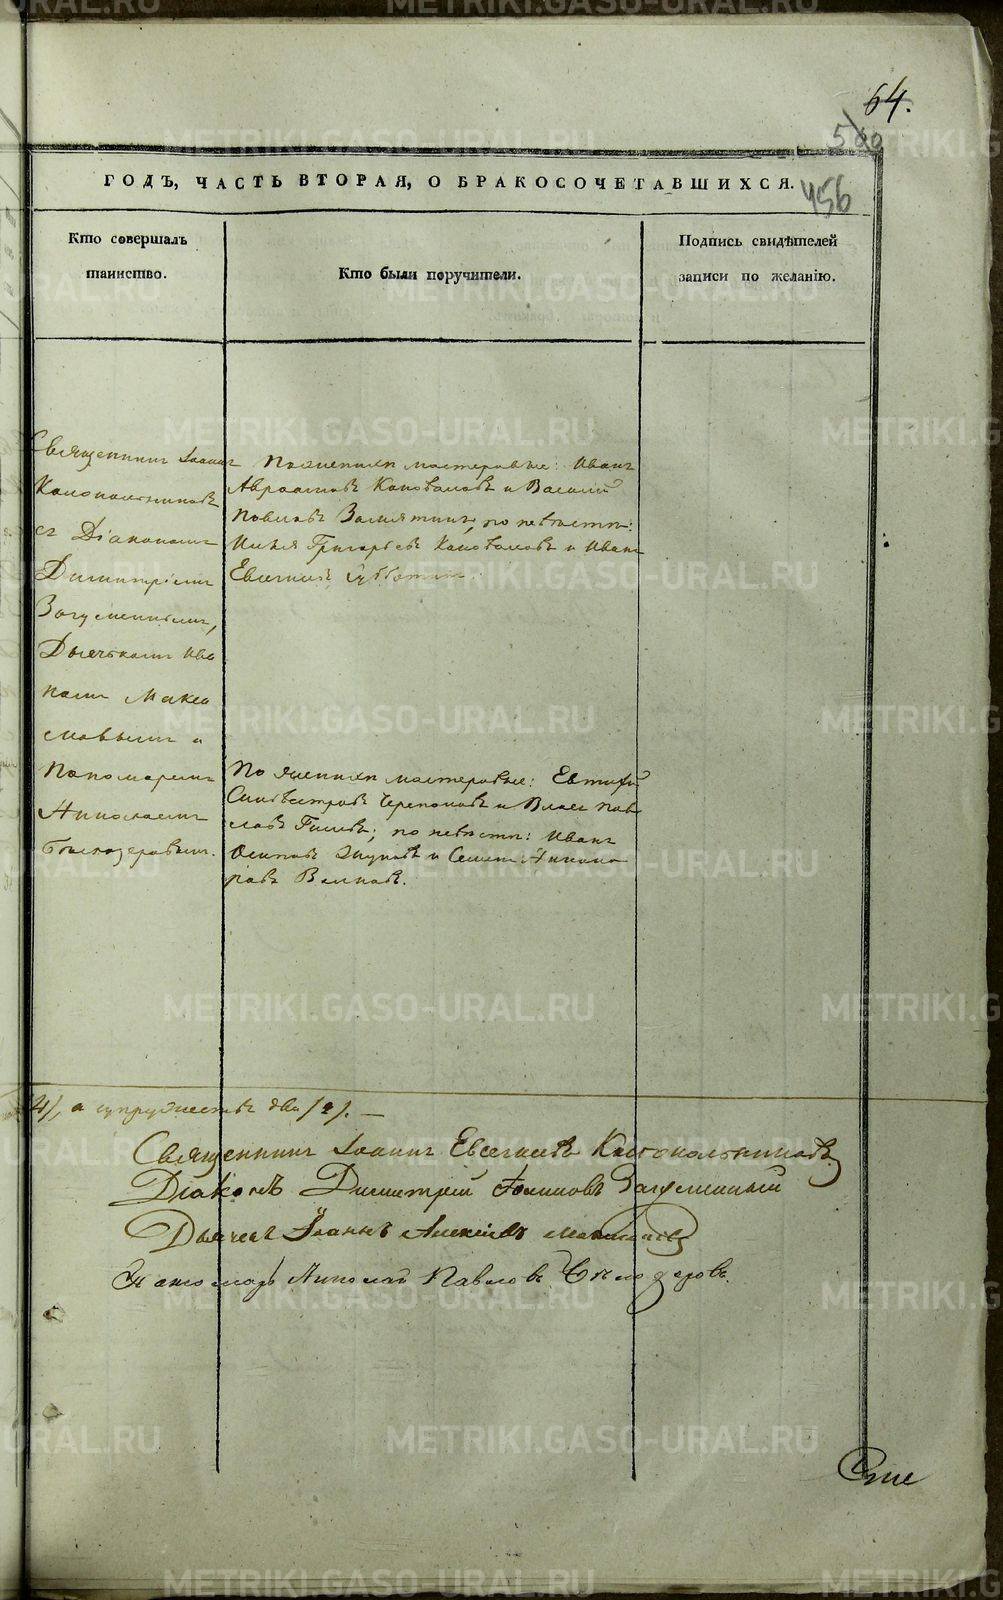 64.
500
456
ГОДЪ, ЧАСТЬ ВТОРАЯ, О БРАКОСОЧЕТАВШИХСЯ.
Кто совершалъ
таинство.
Кто были поручители.
Подпись свидѣтелей
записи по желанію.
Священникъ Іоаннъ
Колокольниковъ
съ Діакономъ
Димитріемъ
Загуменнымъ,
Дьячькомъ Ива
номъ Макси
мовымъ и
Пономаремъ
Николаемъ
Бѣлозеровымъ.
По женихѣ мастеровые: Иванъ
Авраамовъ Коноваловъ и Василій
Павловъ Замятинъ, по невѣстѣ:
Илья Григорьевъ Коноваловъ и Иванъ
Евгеніевъ Субботинъ.
По женихѣ мастеровые: Евтифій
Силвестровъ Черепановъ и Власъ Пав
ловъ Гилевъ; по невѣстѣ: Иванъ
Осиповъ и Семенъ Никано
ровъ Волковъ.
4/, а супружествъ два /2/. —
Священникъ Іоаннъ Евсегнеевъ Колокольниковъ.
Діаконъ Димитрій Іоанновъ Загуменный
Дьячекъ Іоаннъ Алексѣевъ Максимовъ
Пономарь Николай Павловъ Бѣлозеровъ.
METRIKI.GASO-URAL.RU